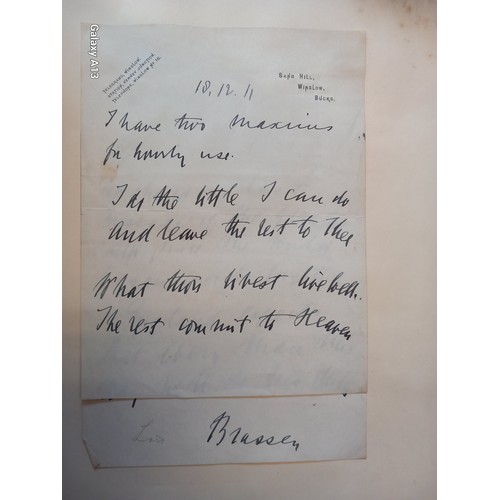 Galaxy A13
TELEGRAMS, WINSLOW.
STATION, VERNEY JUNCTION
TELEPHONE, WINSLOW
HILL,
WINSLOW,
BUCKS.
18.12.11
I have two maxims
for hourly use.
I do the little I can do
and leave the rest to Thee
What thou livest live well.
The rest commit to Heaven
Brassey